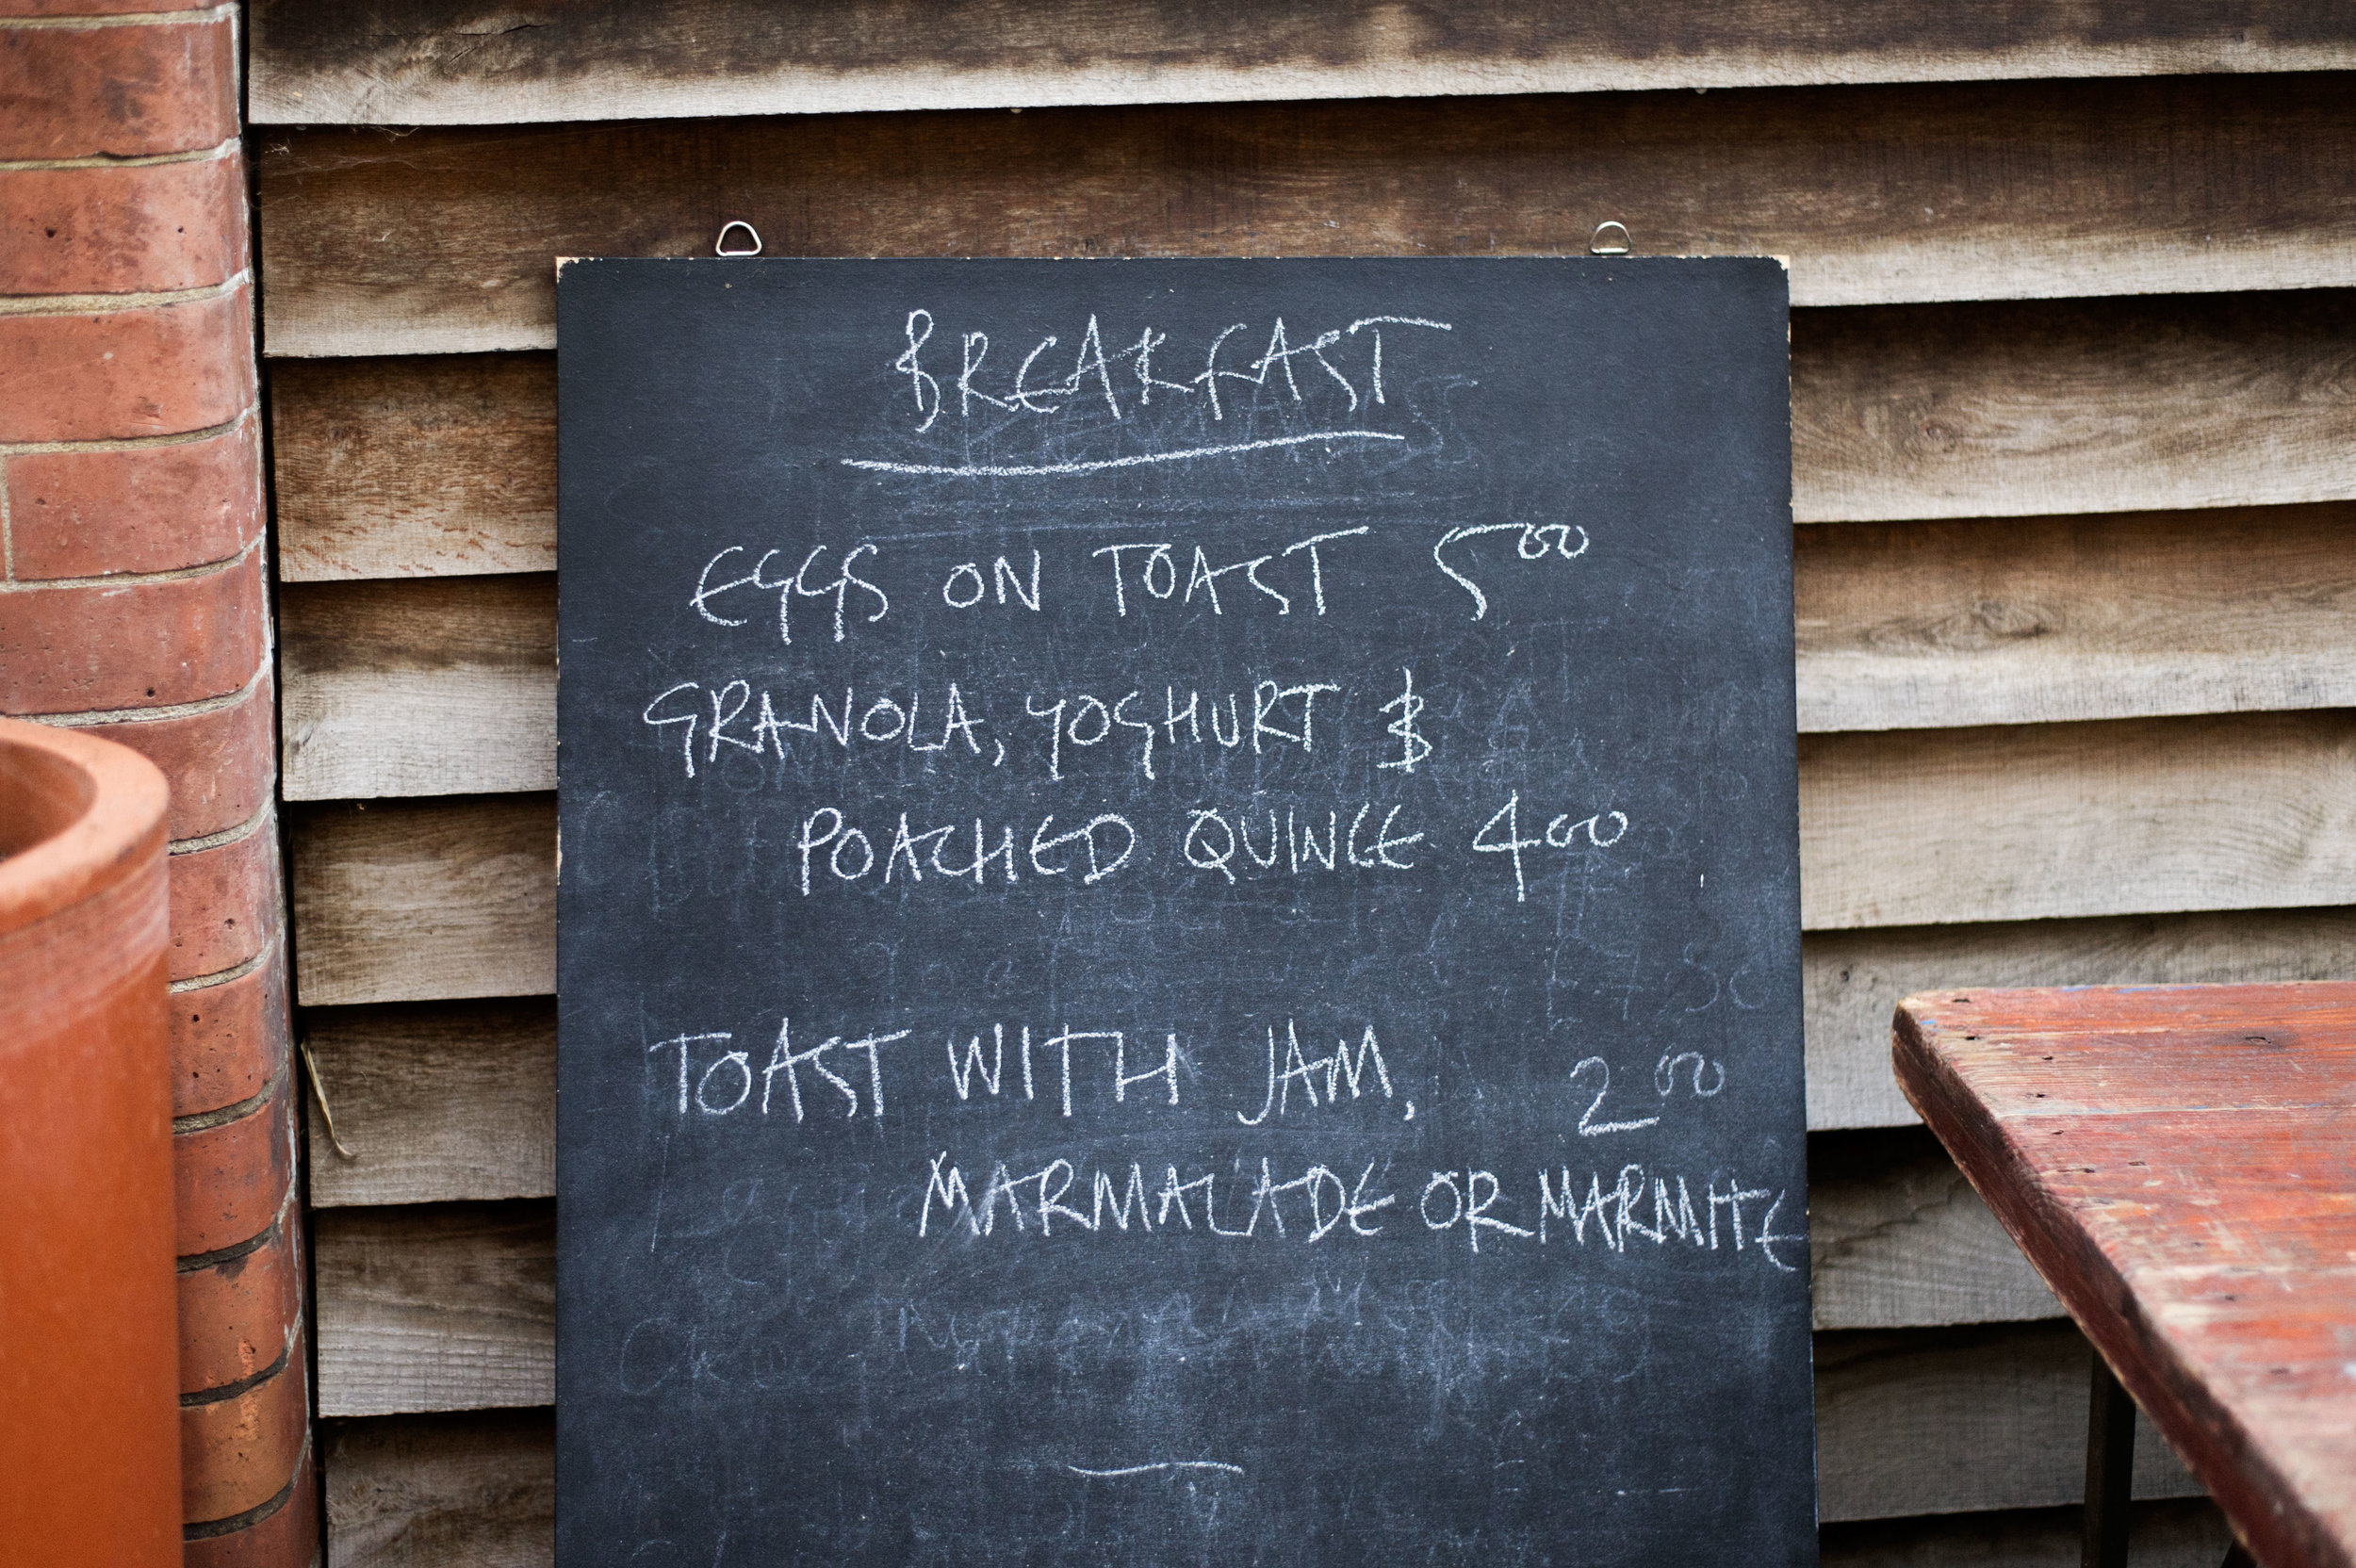 BREAKFAST
EGGS ON TOAST 5.00
GRANOLA, YOGHURT &
POACHED QUINCE 4.00
TOAST WITH JAM, 2.00
MARMALADE OR MARMITE